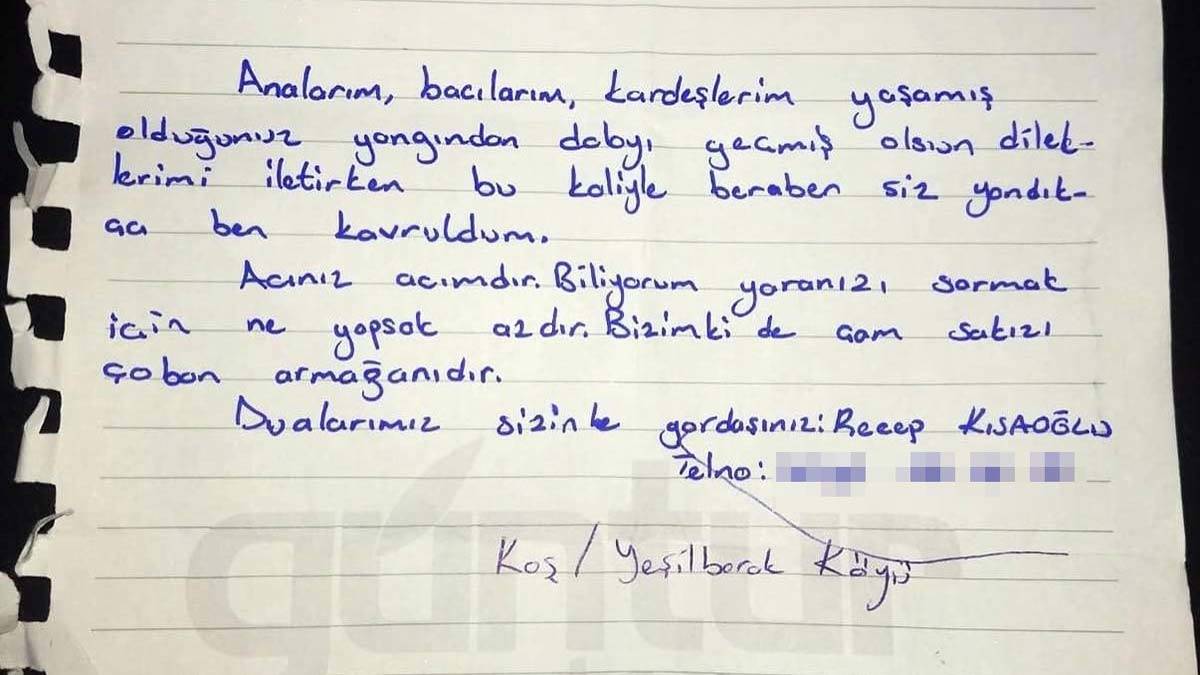 Analarım, bacılarım, kardeşlerim yaşamış
olduğunuz yangından dolayı geçmiş olsun dilek-
lerimi iletirken bu koliyle beraber siz yandık-
ça ben kavruldum.
Acınız acımdır. Biliyorum yaranızı sarmak
için ne yapsak azdır. Bizimki de çam sakızı
çoban armağanıdır.
Dualarımız sizinle gardaşınız: Recep KISAOĞLU
Telno:
Kaş / Yeşilbarak Köyü
güntur